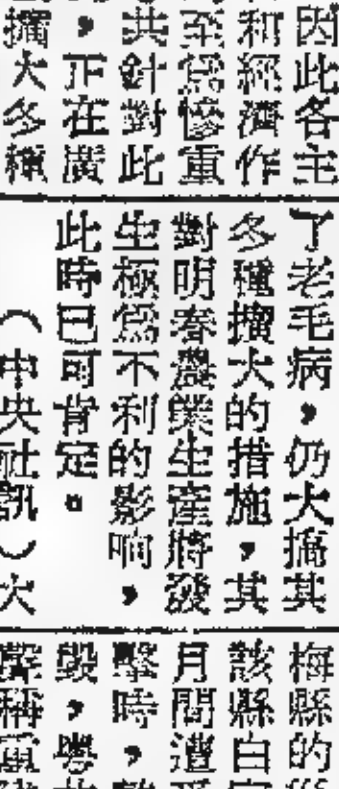 因此各主
和經濟作
至爲慘重
共針對此
，正在廣
擴大多種
了老毛病，仍大搞其
多種擴大的措施，其
對明春農業生產將發
生極爲不利的影响，
此時已可肯定。
（中央社訊）大
梅縣的
該縣白
月間遭
擊時，
毀，粵
聲稱重